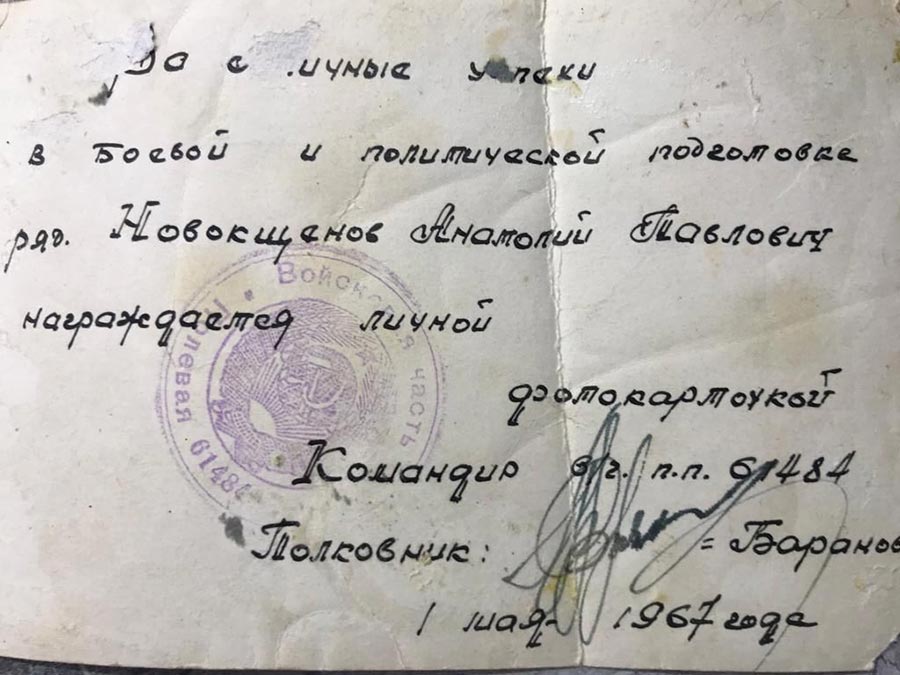 За отличные успехи
в боевой и политической подготовке
ряд. Новокщенов Анатолий Павлович
награждается личной
фотокарточкой
Командир в/г. п.п. 61484
Полковник: = Баранов
1 мая 1967 года
Войсковая часть
Полевая 61484